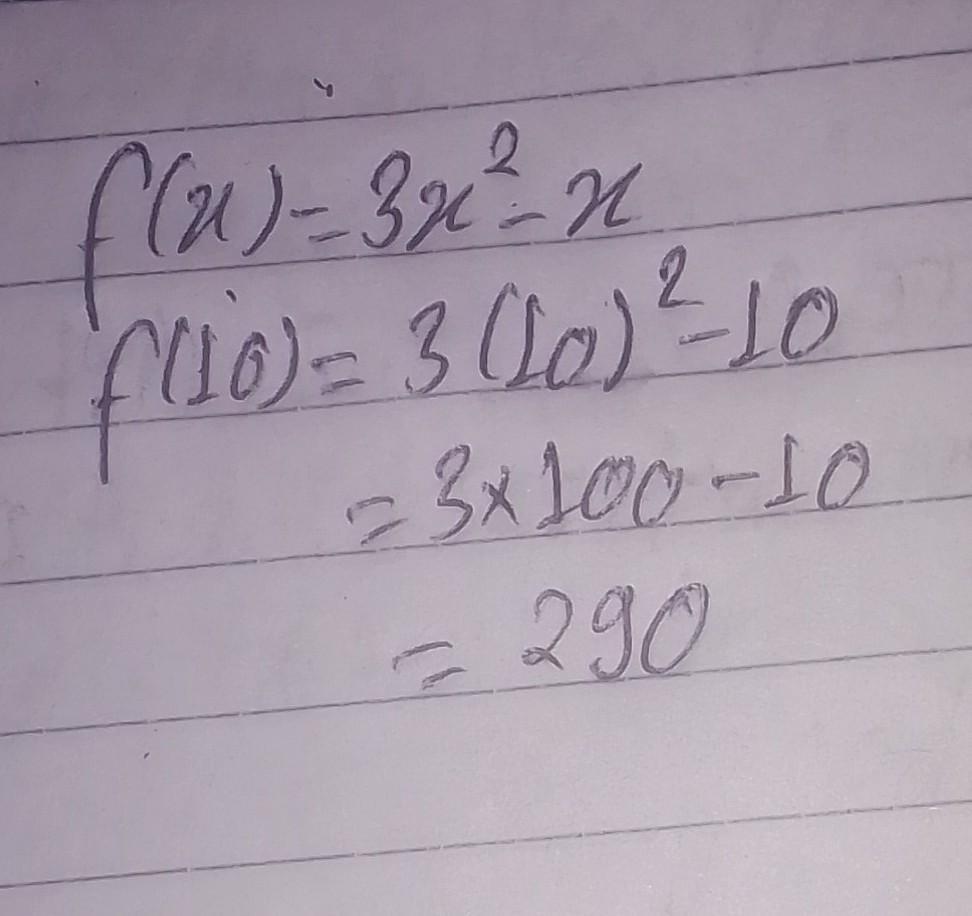 f(x)=3x²-x
f(10)=3(10)²-10
=3×100-10
=290